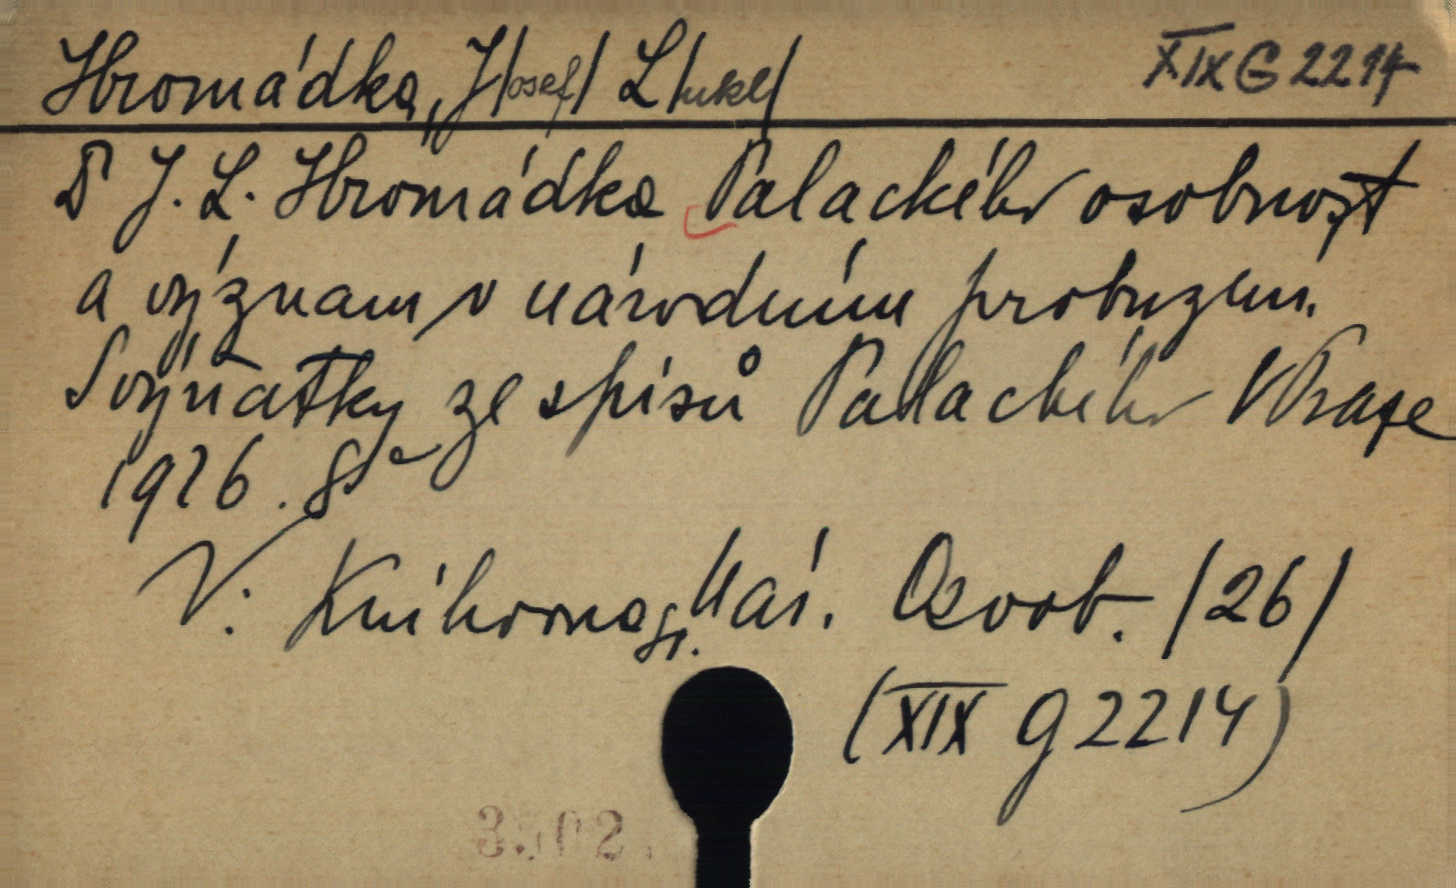 Hromádka, J/osef/ L/ukl/ XIX G 2214
Dr J. L. Hromádka Palackého osobnost
a význam v národním probuzení.
S výňatky ze spisů Palackého V Praze
1926. 8°
V: Knihovna Nár. Osvob. /26/
(XIX G 2214)